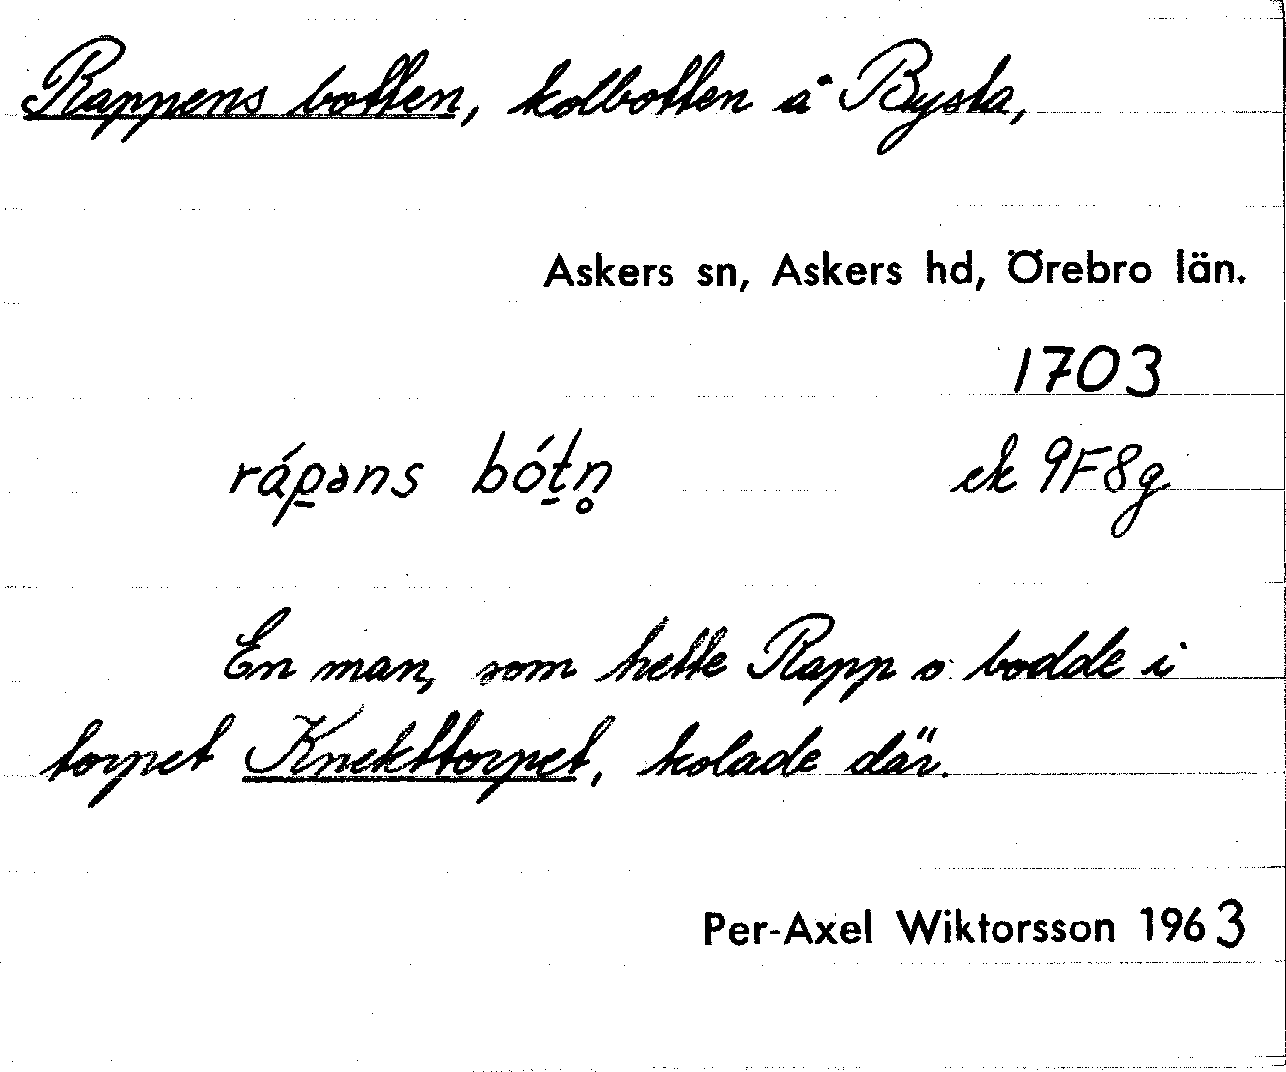 Rappens botten, kolbotten å Bysta,
Askers sn, Askers hd, Örebro län.
1703
ráp̱əns bóṯn̥ ek 9F8g
En man, som hette Rapp o bodde i
torpet Knekttorpet, kolade där.
Per-Axel Wiktorsson 1963